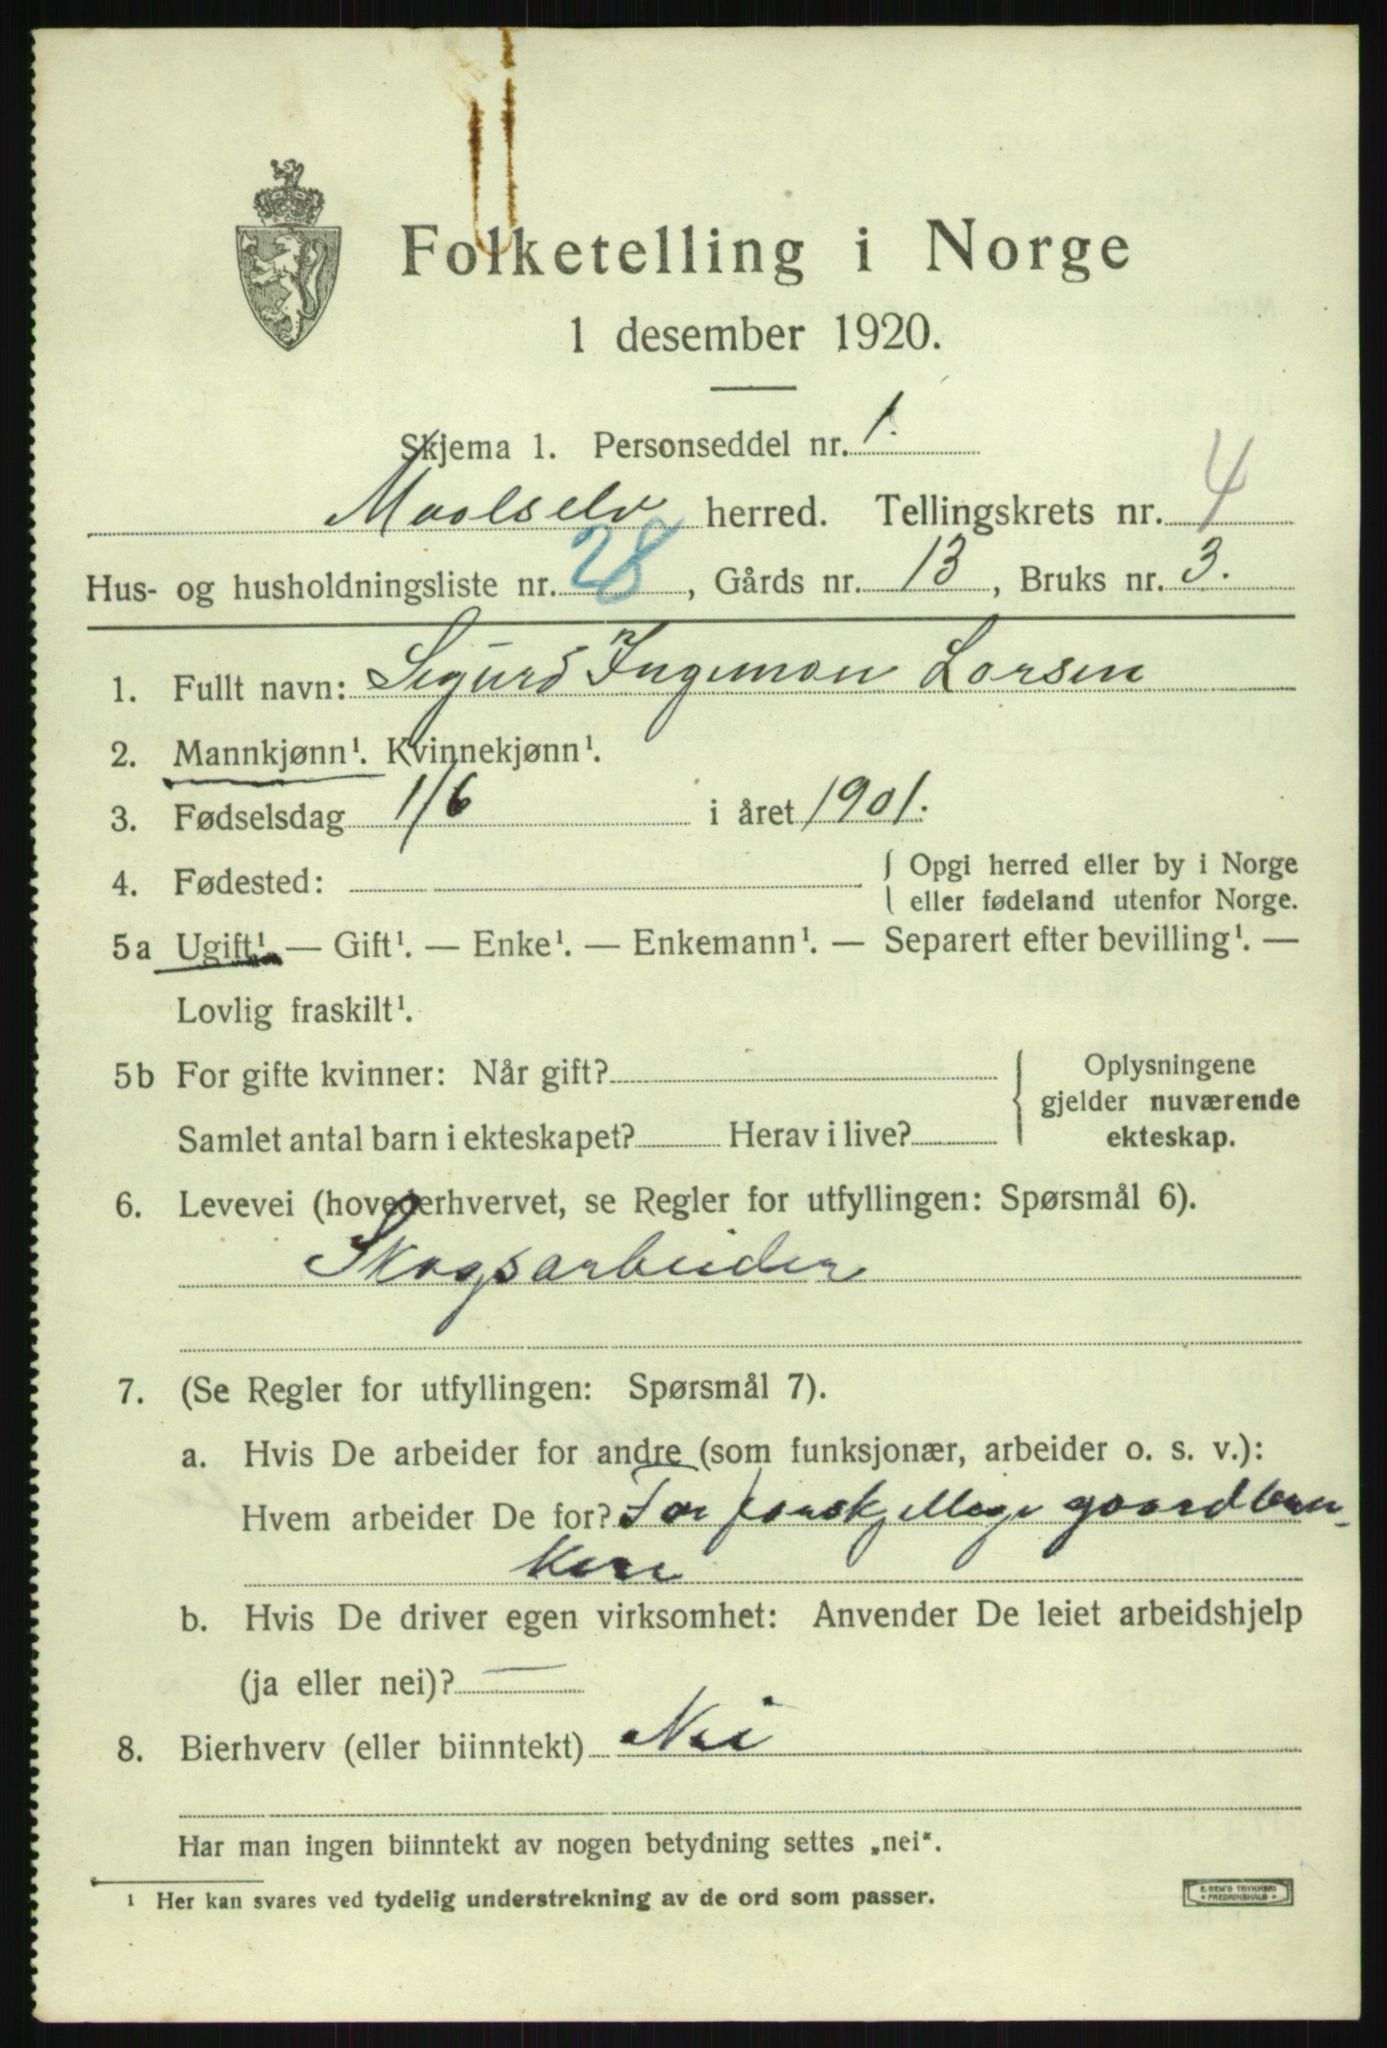 Folketelling i Norge
1 desember 1920.
Skjema 1. Personseddel nr. 1.
Maalselv herred. Tellingskrets nr. 4
Hus- og husholdningsliste nr. 28, Gårds nr. 13, Bruks nr. 3.
1. Fullt navn: Sigurd Ingeman Larsen
2. Mannkjønn¹. Kvinnekjønn¹.
3. Fødselsdag 1/6 i året 1901.
4. Fødested: { Opgi herred eller by i Norge
eller fødeland utenfor Norge.
5a Ugift¹ — Gift¹. — Enke¹. — Enkemann¹. — Separert efter bevilling¹. —
Lovlig fraskilt¹.
5b For gifte kvinner: Når gift? { Oplysningene
gjelder nuværende
Samlet antal barn i ekteskapet? Herav i live? ekteskap.
6. Levevei (hovederhvervet, se Regler for utfyllingen: Spørsmål 6).
Skogsarbeider
7. (Se Regler for utfyllingen: Spørsmål 7).
a. Hvis De arbeider for andre (som funksjonær, arbeider o. s. v.):
Hvem arbeider De for? For forskjellige gaardbru-
kere
b. Hvis De driver egen virksomhet: Anvender De leiet arbeidshjelp
(ja eller nei)? —
8. Bierhverv (eller biinntekt) Nei
Har man ingen biinntekt av nogen betydning settes „nei“.
¹ Her kan svares ved tydelig understrekning av de ord som passer.